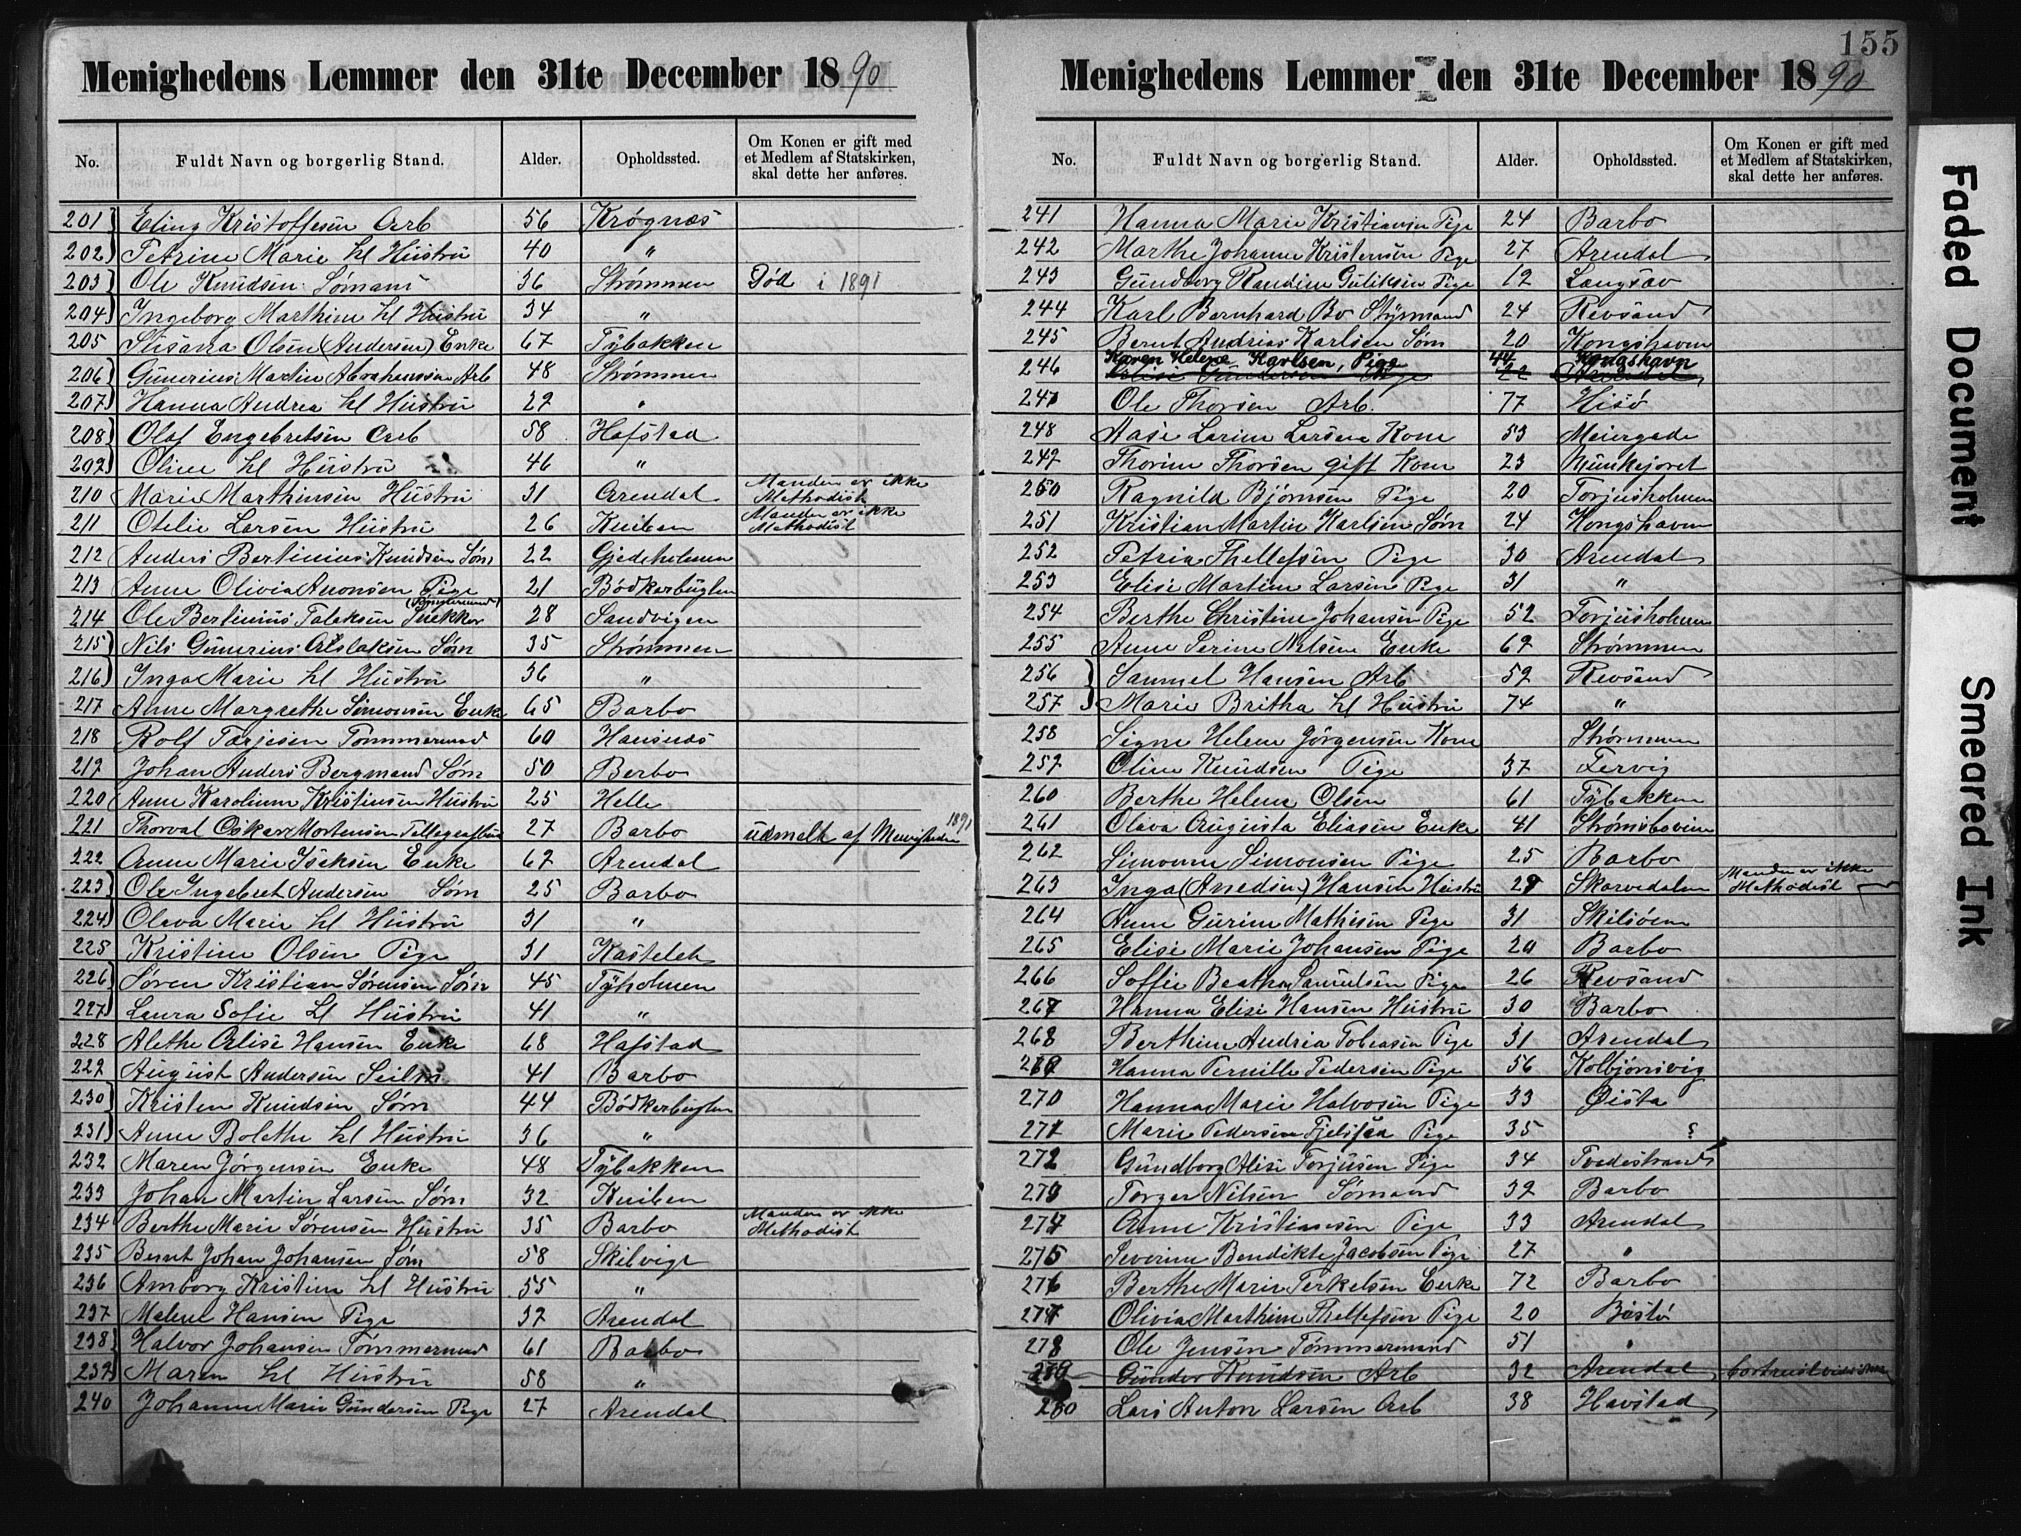 155
Menighedens Lemmer den 31te December 1890
No. Fuldt Navn og borgerlig Stand. Alder. Opholdssted. Om Konen er gift med et Medlem af Statskirken, skal dette her anføres.
201 Eling Kristoffesen Arb 56 Krøgnæs
202 Petrine Marie hl Hustru 40 "
203 Ole Knudsen Sømand 36 Strømmen Død i 1891
204 Ingeborg Marthine hl Hustru 34 "
205 Susanna Olsen (Andersen) Enke 67 Tybakken
206 Gunerius Martin Abrahamsen Arb 48 Strømmen
207 Hanna Andrea hl Hustru 29 "
208 Olaf Engebretsen Arb 58 Hafstad
209 Oline hl Hustru 46 "
210 Marie Marthinsen Hustru 31 Arendal Manden er ikke Methodist
211 Otelie Larsen Hustru 26 Kuiben Manden er ikke Methodist
212 Anders Bertinius Knudsen Søm 22 Gjedeholmen
213 Anne Olivia Amonsen Pige 21 Bödkerbugten
214 Ole Bertinius Talaksen Snekker 28 Sandvigen
215 Nils Gunerius Aslaksen Søm 35 Strømmen
216 Inga Marie hl Hustru 36 "
217 Anne Margrethe Simonsen Enke 65 Barbo
218 Rolf Tarjesen Tømmermand 60 Hansnæs
219 Johan Anders Bergmand Søm 50 Berbo
220 Anne Karoline Kristensen Hustru 25 Helle
221 Thorval Oskar Mortensen 27 Barbo udmelt af Menigheden 1891
222 Anne Marie Iseksen Enke 69 Arendal
223 Ole Ingebret Andersen Søm 25 Barbo
224 Olava Marie hl Hustru 31 "
225 Kristine Olsen Pige 31 Kastelet
226 Søren Kristian Sørensen Søm 45 Tyholmen
227 Laura Sofie hl Hustru 41 "
228 Alethe Elise Hansen Enke 68 Hafstad
229 August Andersen Seilm 41 Barbo
230 Kristen Knudsen Søm 44 Bödkerbugten
231 Anne Bolethe hl Hustru 36 "
232 Maren Jørgensen Enke 48 Tybakken
233 Johan Martin Larsen Søm 32 Kuiben
234 Berthe Marie Sørensen Hustru 35 Barbo Manden er ikke Methodist
235 Bernt Johan Johansen Søm 58 Skilvige
236 Amborg Kristine hl Hustru 55 "
237 Malene Hansen Pige 39 Arendal
238 Halvor Johansen Tømmermand 61 Barbo
239 Maren hl Hustru 58 "
240 Johanne Marie Gundersen Pige 27 Arendal
Menighedens Lemmer den 31te December 1890
No. Fuldt Navn og borgerlig Stand. Alder. Opholdssted. Om Konen er gift med et Medlem af Statskirken, skal dette her anføres.
241 Hanna Marie Kristiansen Pige 24 Barbo
242 Marthe Johanne Kristensen Pige 27 Arendal
243 Gundborg Randine Guliksen Pige 19 Langsæv
244 Karl Bernhard Bo Stÿrmand 24 Revsand
245 Bernt Andrias Karlsen Søm 20 Kongshavn
246 Karen Helene Karlsen, Pige 44 Kongshavn
247 Ole Thorsen Arb. 77 Hisö
248 Aase Larine Larsen Kone 53 Meiergade
249 Thorine Thorsen gift Kone 23 Munkejoret
250 Ragnild Bjørnsen Pige 20 Torjusholmen
251 Kristian Martin Karlsen Søm 24 Kongshavn
252 Petria Thellefsen Pige 30 Arendal
253 Elise Martine Larsen Pige 31 "
254 Berthe Christine Johansen Pige 52 Torjusholmen
255 Anne Serine Nilsen Enke 69 Strømmen
256 Samuel Hansen Arb 59 Revsand
257 Marie Britha hl Hustru 74 "
258 Signe Helene Jørgensen Kone Strømmen
259 Oline Knudsen Pige 37 Tervig
260 Berthe Helene Olsen 61 Tybakken
261 Olava Augusta Eliasen Enke 41 Strømsbovinn
262 Simonne Simonsen Pige 25 Barbo
263 Inga (Anedsen) Hansen Hustru 29 Skarvedalen Manden er ikke Methodist
264 Anne Gurine Mathisen Pige 31 Skilsøen
265 Elise Marie Johansen Pige 20 Barbo
266 Soffie Beatha Samuelsen Pige 26 Revsand
267 Hanna Elise Hansen Hustru 30 Barbo
268 Berthine Andria Tobiasen Pige 31 Arendal
269 Hanna Pernille Pedersen Pige 56 Kolbjørnsvig
270 Hanna Marie Halvosen Pige 33 Øista
271 Marie Pedersen Fjelstad Pige 35 ?
272 Gundborg Alise Torjusen Pige 34 Tvedestrand
273 Torger Nilsen Sømand 39 Barbo
274 Anne Kristiansen Pige 33 Arendal
275 Severine Bendikte Jacobsen Pige 27 "
276 Berthe Marie Terkelsen Enke 72 Barbo
277 Olivia Marthine Thellefsen Pige 20 Bistö
278 Ole Jensen Tømmermand 51 "
279 Gunder Knudsen Arb 32 Arendal
280 Lars Anton Larsen Arb 38 Havstad
Faded Document
Smeared Ink